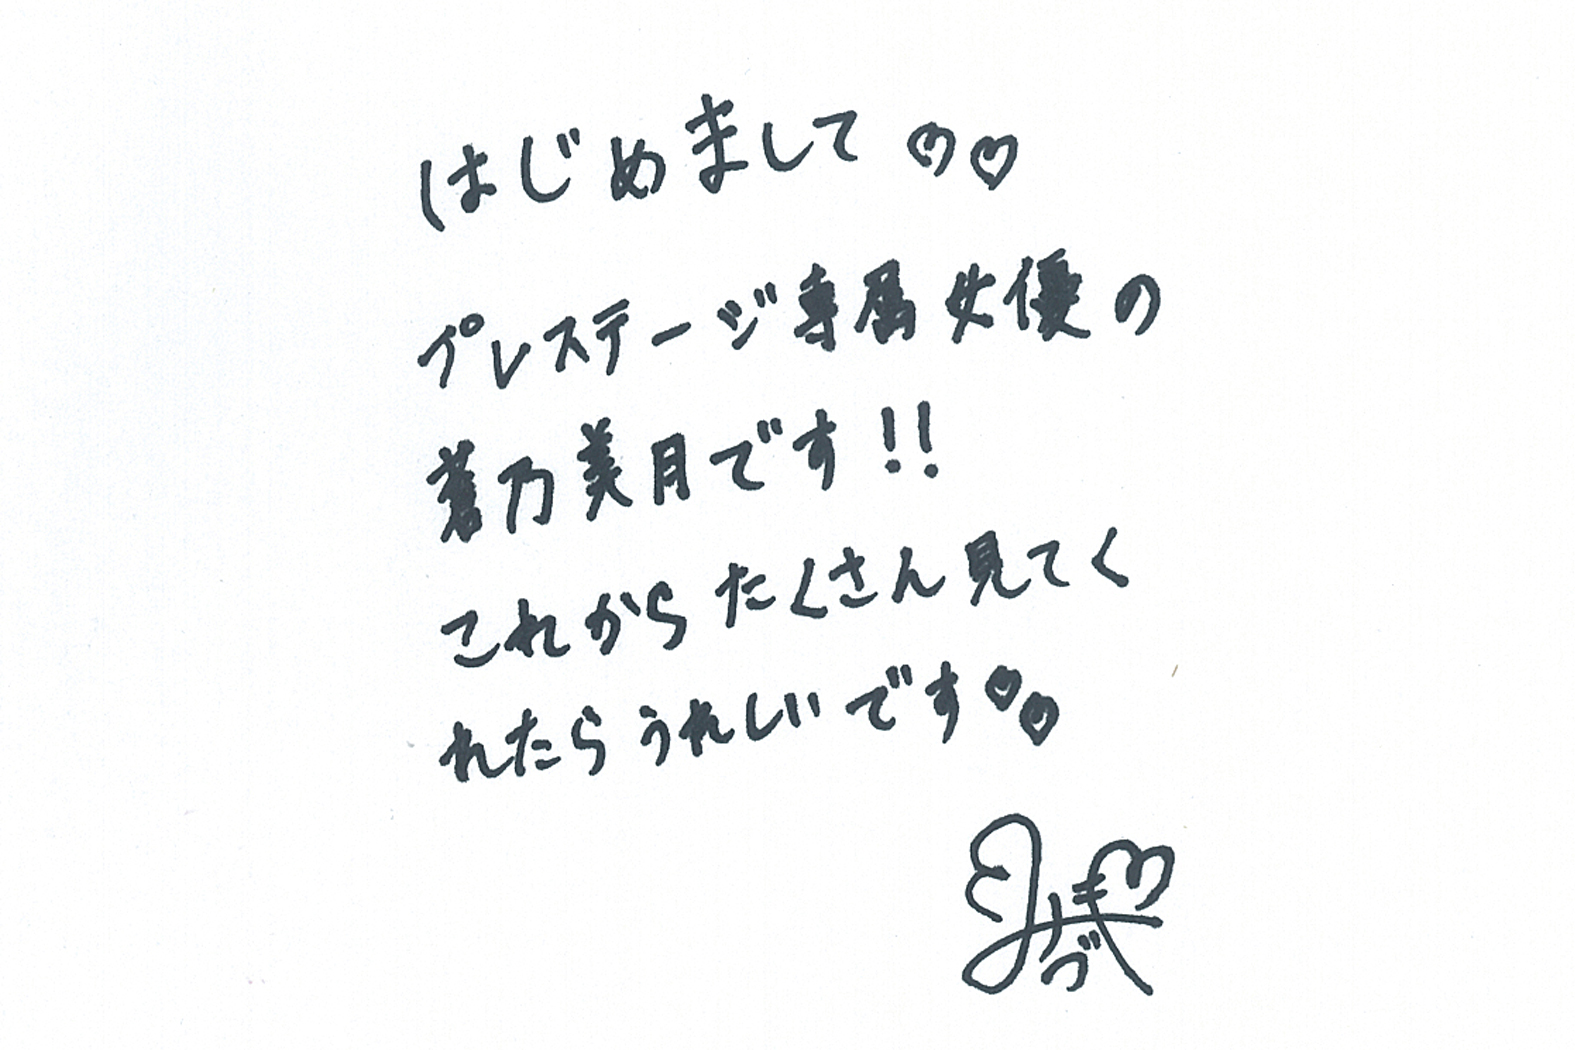 はじめまして♡♡
プレステージ専属女優の
蒼乃美月です!!
これからたくさん見てく
れたらうれしいです♡♡
みづき